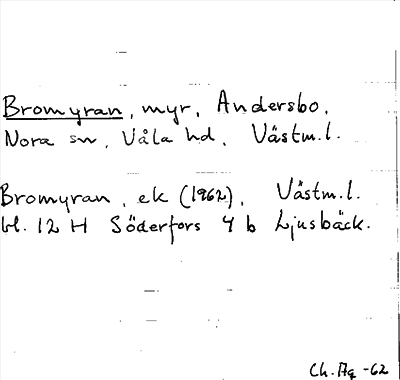 Bromyran, myr, Andersbo,
Nora sn, Våla hd, Västm.l.
Bromyran, ek (1962), Västm.l.
bl. 12 H Söderfors 4 b Ljusbäck.
Ch. Ag -62